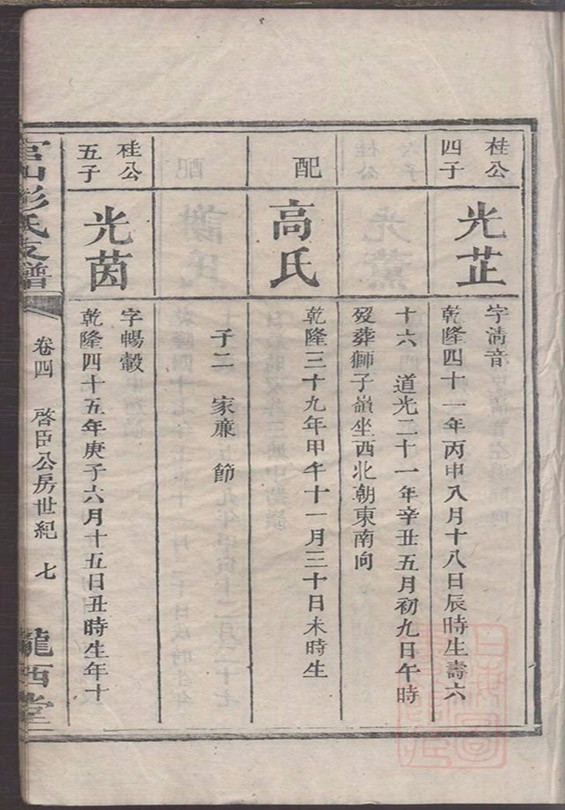 桂公
四子
光芷
字清音
乾隆四十一年丙申八月十八日辰時生壽六
十六 道光二十一年辛丑五月初九日午時
歿葬獅子嶺坐西北朝東南向
配
高氏
乾隆三十九年甲午十一月三十日未時生
子二 家廉 節
桂公
五子
光茵
字暢轂
乾隆四十五年庚子六月十五日丑時生年十
彭氏支譜
卷四 啓臣公房世紀 七
隴西堂